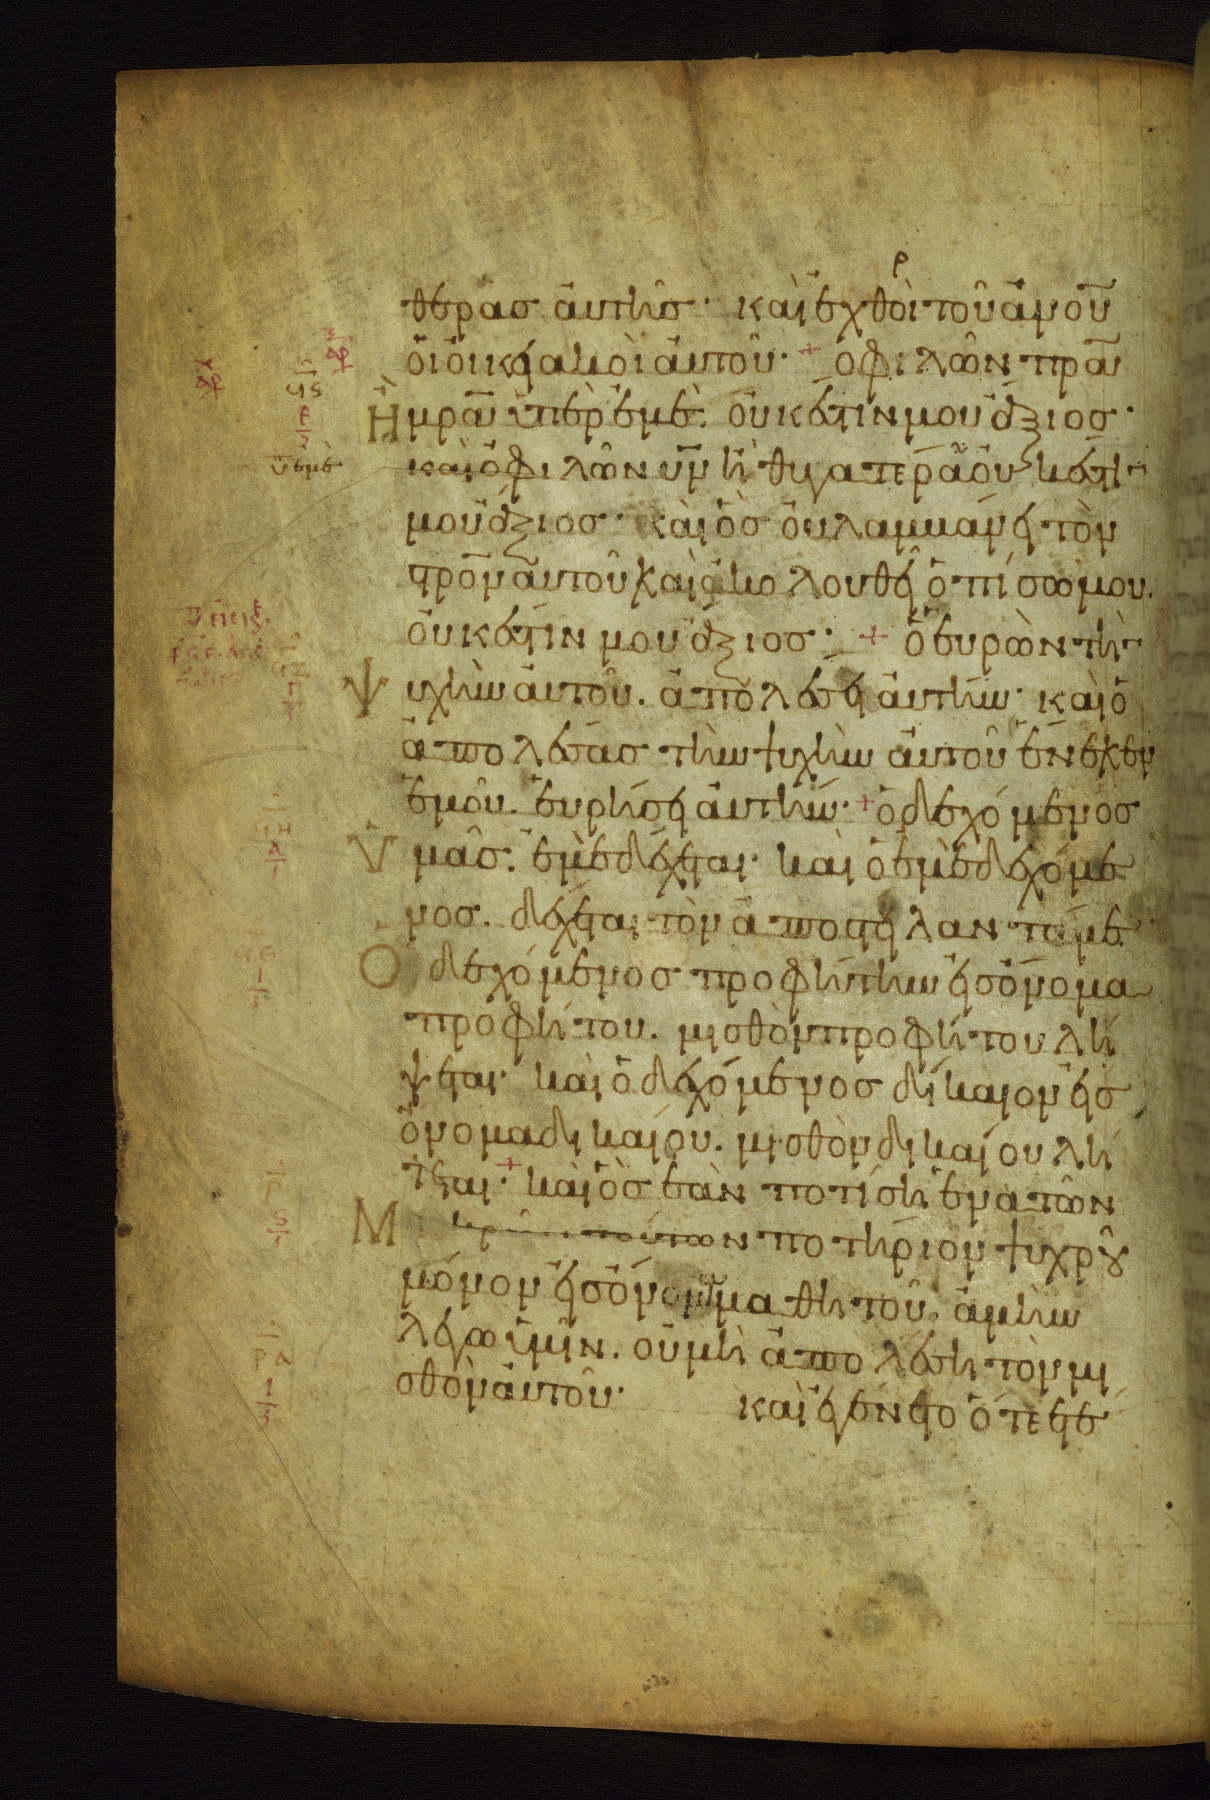 θερᾶσ ἀυτῆσ· καὶ ἐχθροὶ τοῦ ἀνου
ὁι οἰκειακοὶ ἀυτοῦ· + ὁ φιλῶν πρα
ἢ μρα ὑπὲρ ἐμὲ. οὐκ ἔστιν μου ἄξιοσ·
καὶ ὁ φιλῶν υν ἢ θυγατέρα οὐκ ἔστι
μου ἄξιοσ· καὶ ὃσ οὐ λαμβάνει τὸν
στρον ἀυτοῦ καὶ ἀκολουθεῖ ὀπίσω μου.
οὐκ ἔστιν μου ἄξιοσ· + ὁ ευρὼν τὴν
ψυχὴν ἀυτοῦ. ἀπολέσει ἀυτήν· καὶ ὁ
ἀπολέσασ τὴν ψυχὴν ἀυτοῦ ἕνεκεν
ἐμοῦ. ἑυρήσει ἀυτήν· + ὁ δεχόμενοσ
ὑμᾶσ. ἐμὲ δέχεται· καὶ ὁ ἐμὲ δεχόμε
νοσ. δέχεται τὸν ἀποστείλαντά με
Ὁ δεχόμενοσ προφήτην εἰσ ὄνομα
προφήτου. μισθὸν προφήτου λή
ψεται· καὶ ὁ δεχόμενοσ δίκαιον εἰσ
ὄνομα δικαίου. μισθὸν δικαίου λή
ψεται· + καὶ ὃσ εὰν ποτίση ἕνα τῶν
Μικρῶν τούτων ποτήριον ψυχροῦ
μόνον εἰσ ὄνομα μαθητοῦ. ἀμὴν
λέγω ὑμῖν. οὐ μὴ ἀπολέση τὸν μι
σθὸν ἀυτοῦ· καὶ ἐγένετο ὅτε ἐτε